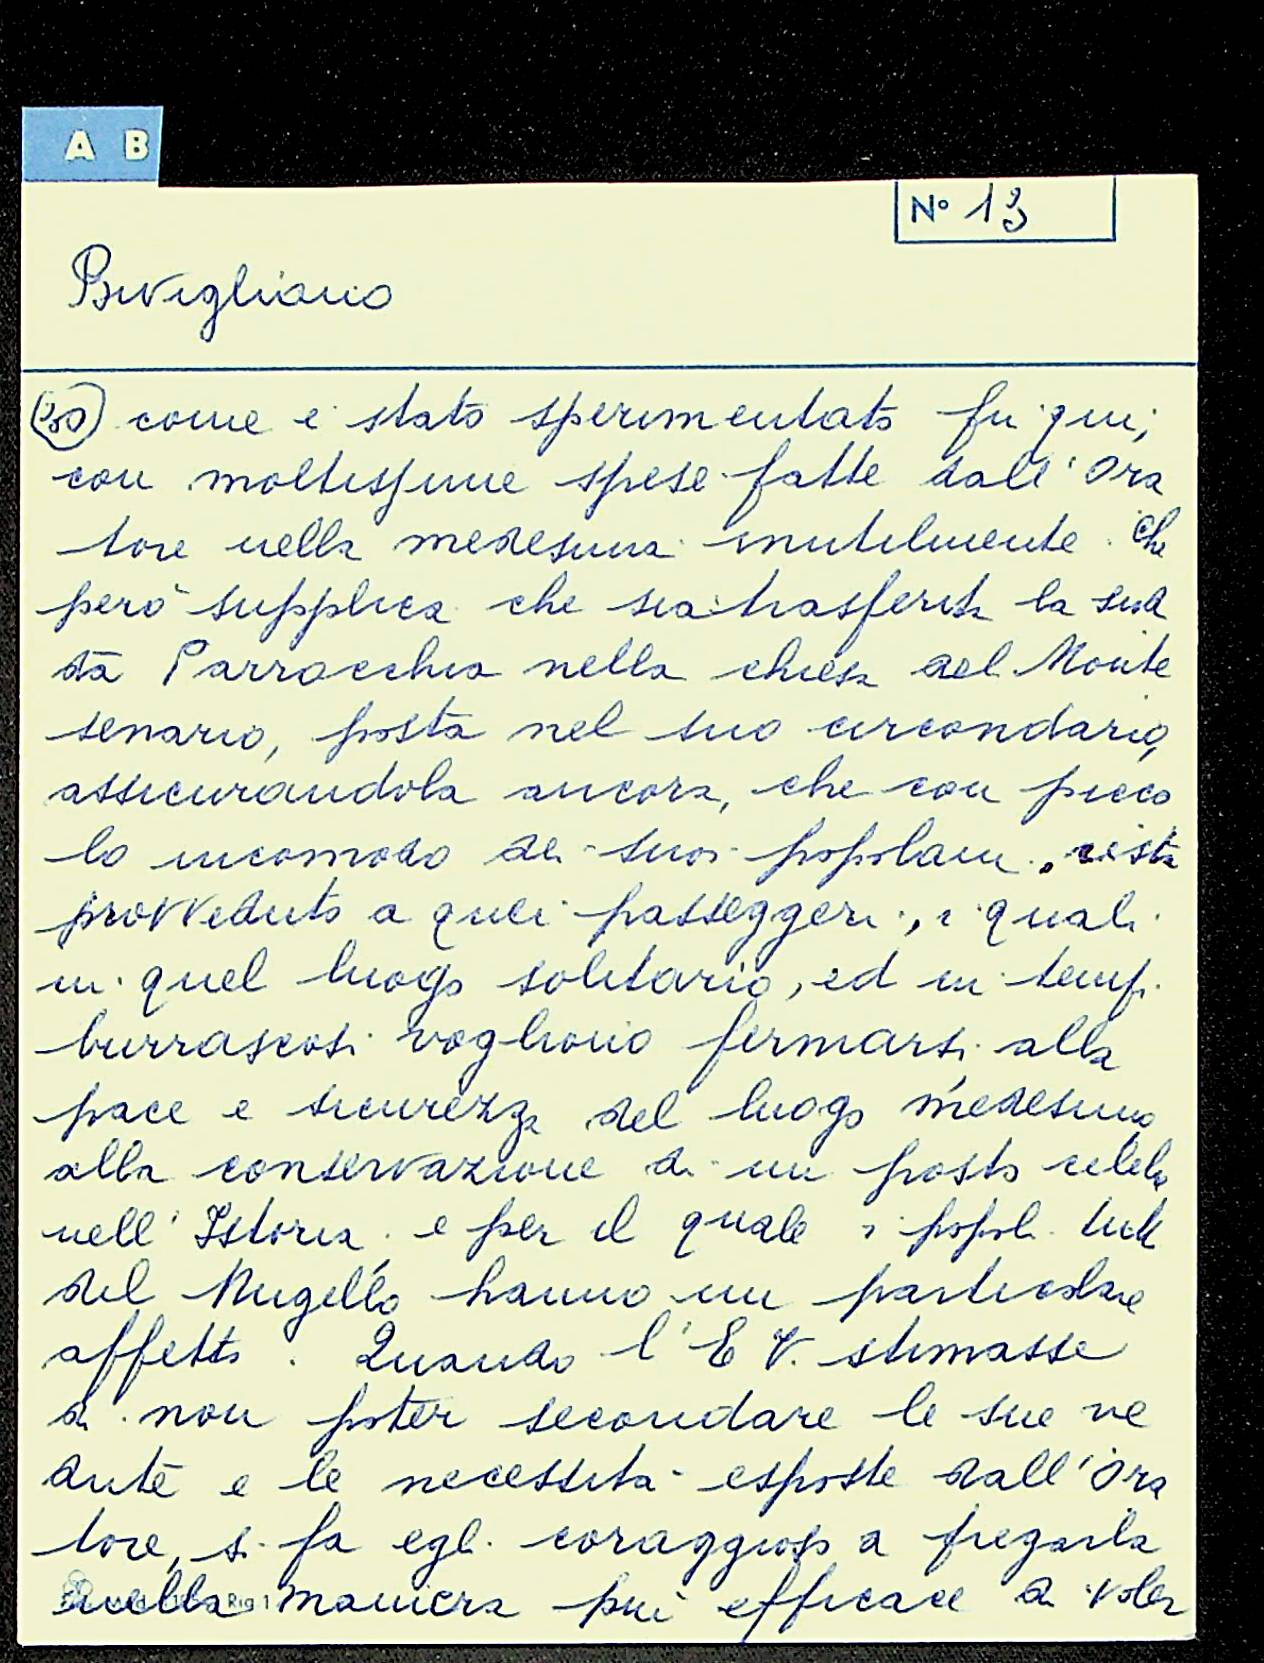 A B
N° 13
Bivigliano
come è stato sperimentato fin qui,
con moltissime spese fatte dall'Ora
tore nella medesima inutilmente. Che
però supplica che sia trasferita la sud
da Parrocchia nella chiesa del Monte
senario, posta nel suo circondario,
assicurandola ancora, che con picco
lo incomodo dei suoi popolani, resta
provveduto a quei passeggeri, i quali
in quel luogo solitario, ed in tempi
burrascosi vogliono fermarsi alla
pace e sicurezza del luogo medesimo
alla conservazione di un posto celebre
nell'Istoria, e per il quale i popoli tutti
del Mugello hanno un particolare
affetto. Quando l'E V. stimasse
di non poter secondare le sue ve
dute e le necessità esposte dall'Ora
tore, si fa egli coraggioso a pregarla
nella maniera più efficace a voler